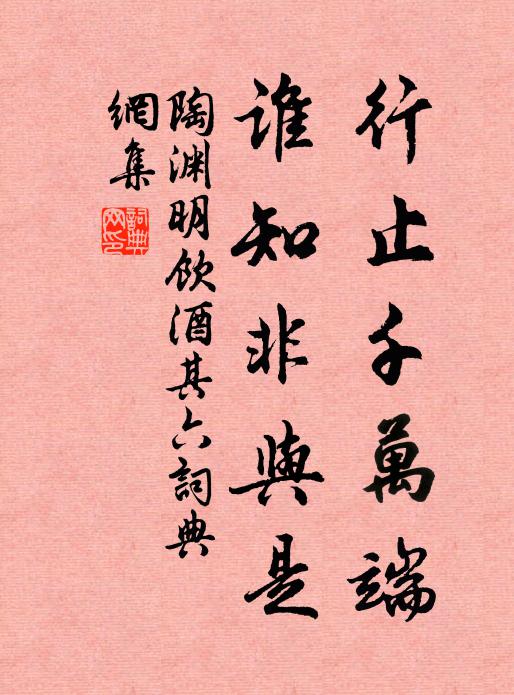 行止千萬端
誰知非與是
陶渊明飲酒其六詞典
網集
詞典
网印